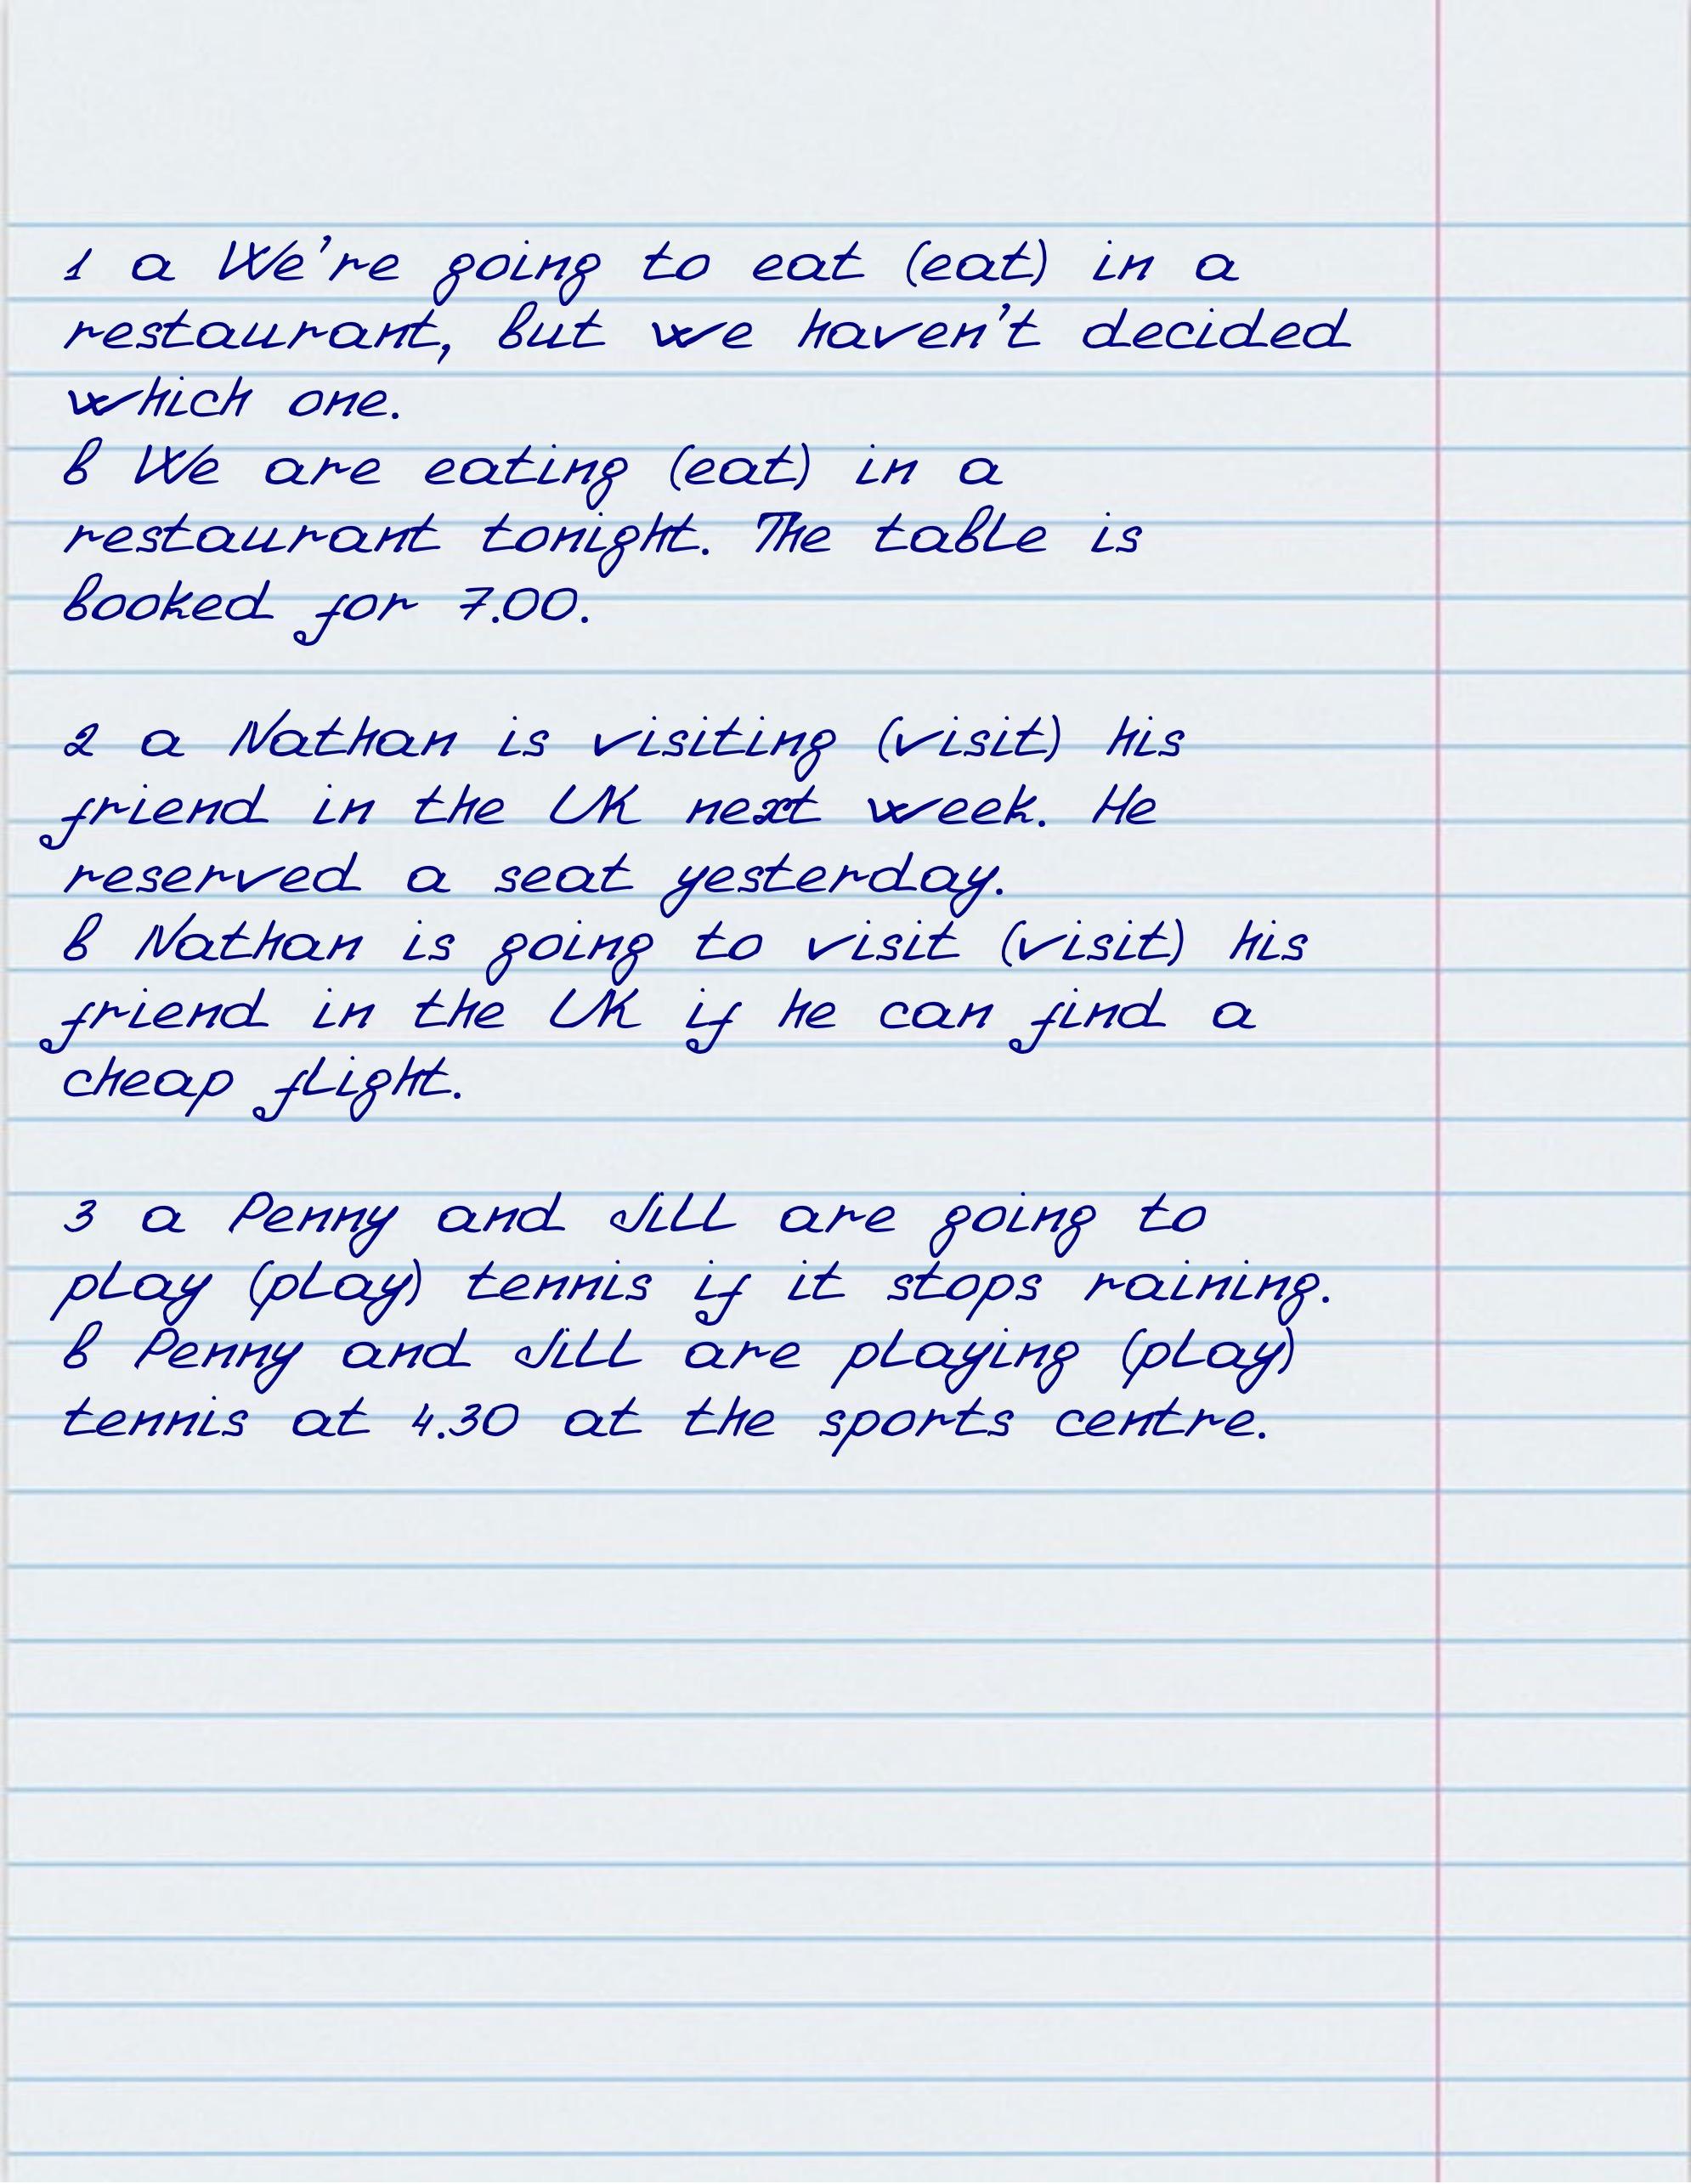 1 a We're going to eat (eat) in a
restaurant, but we haven't decided
which one.
b We are eating (eat) in a
restaurant tonight. The table is
booked for 7.00.
2 a Nathan is visiting (visit) his
friend in the UK next week. He
reserved a seat yesterday.
b Nathan is going to visit (visit) his
friend in the UK if he can find a
cheap flight.
3 a Penny and Jill are going to
play (play) tennis if it stops raining.
b Penny and Jill are playing (play)
tennis at 4.30 at the sports centre.